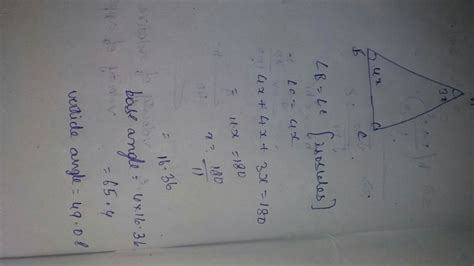 3x
B
4x
C
∠B = ∠C {isosceles}
∠C = 4x
4x + 4x + 3x = 180
= 11x = 180
x = 180
11
= 16.36
base angle = 4x16.36
= 65.4
angle = 49.08